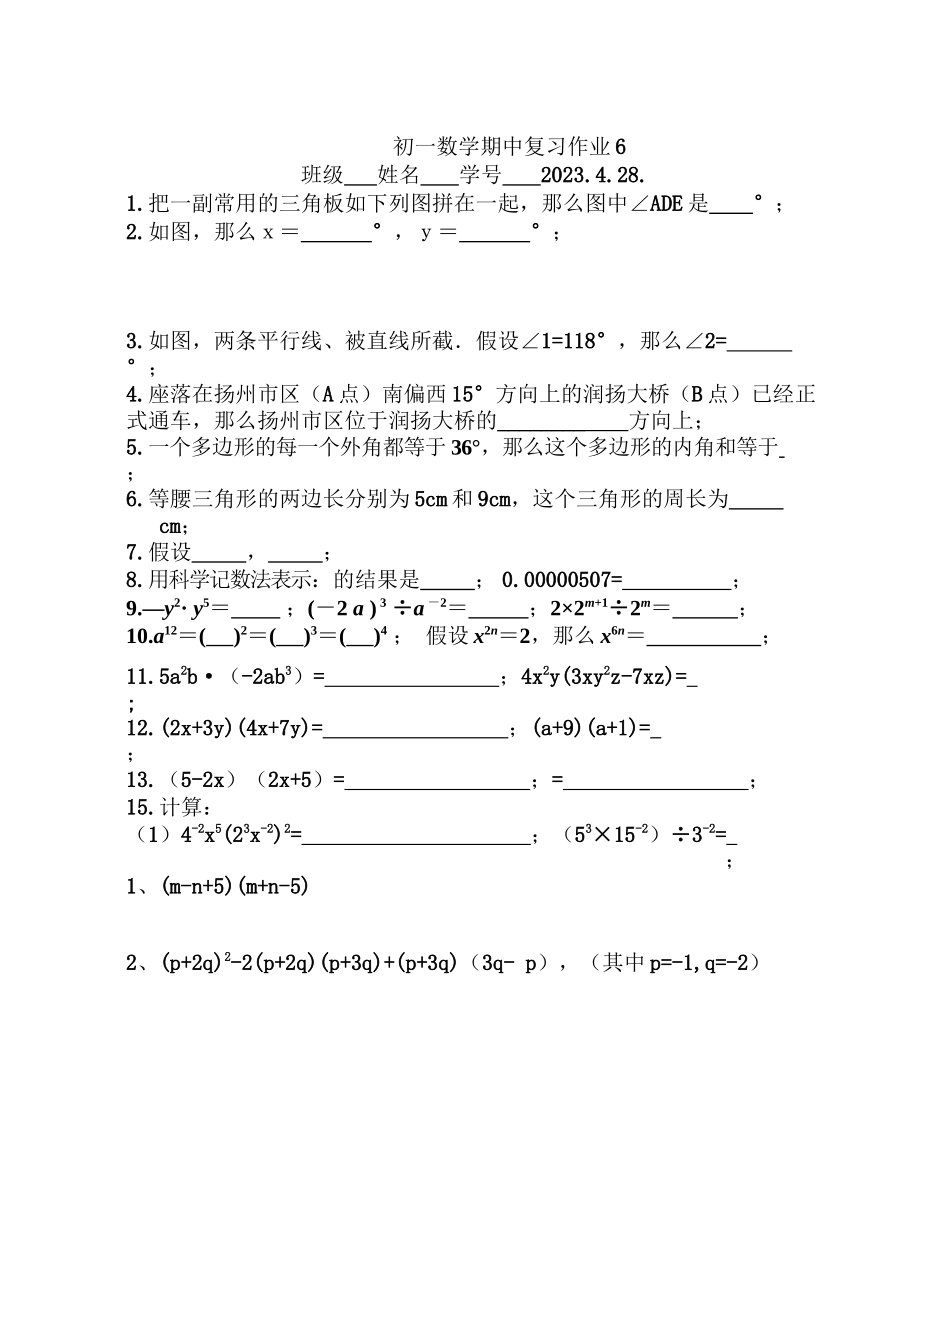 初一数学期中复习作业 6
班级___姓名____学号____2023.4.28.
1.把一副常用的三角板如下列图拼在一起，那么图中∠ADE 是____°；
2.如图，那么 x＝_______°， y＝_______°；
3.如图，两条平行线、被直线所截．假设∠1=118°，那么∠2=______
°；
4.座落在扬州市区（A 点）南偏西 15°方向上的润扬大桥（B 点）已经正
式通车，那么扬州市区位于润扬大桥的____________方向上；
5.一个多边形的每一个外角都等于 36°，那么这个多边形的内角和等于_
；
6.等腰三角形的两边长分别为 5cm 和 9cm，这个三角形的周长为_____
cm；
7.假设_____，_____；
8.用科学记数法表示：的结果是_____； 0.00000507=__________；
9.—y²· y⁵＝_____；(－2 a ) ³ ÷a ⁻²＝______；2×2ᵐ⁺¹÷2ᵐ＝______；
10.a¹²＝(___)²＝(___)³＝(___)⁴； 假设 x²ⁿ＝2，那么 x⁶ⁿ＝___________；
11.5a²b·（-2ab³）=________________；4x²y(3xy²z-7xz)=_
；
12.(2x+3y)(4x+7y)=_________________；(a+9)(a+1)=_
；
13.（5-2x）（2x+5）=_________________；=_________________；
15.计算：
（1）4⁻²x⁵(2³x⁻²)²=_____________________；（5³×15⁻²）÷3⁻²=_
；
1、(m-n+5)(m+n-5)
2、(p+2q)²-2(p+2q)(p+3q)+(p+3q)（3q- p），（其中 p=-1,q=-2）